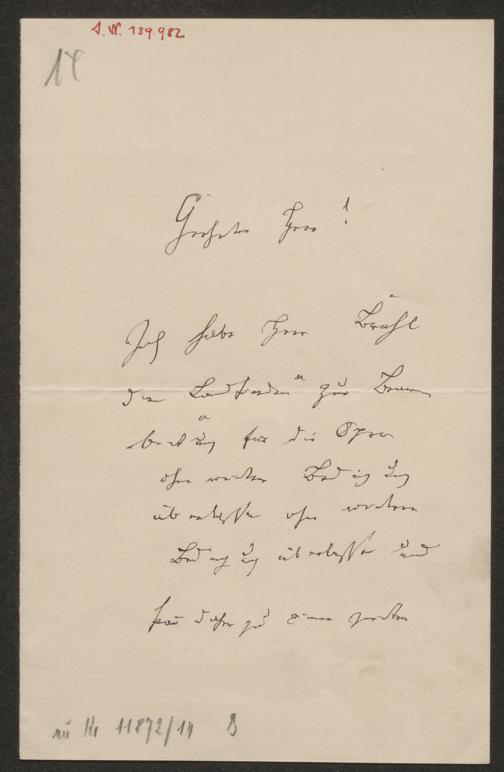 I. N. 139.982
14
Geehrter Herr!
Ich habe Herrn Brüll
den "Landfrieden" zur Bear
beitung für die Oper
ohne weitere Bedingung
überlassen ohne weitere
Bedingung überlassen und
daher zu einer zweiten
zu Nr 11872/14 B